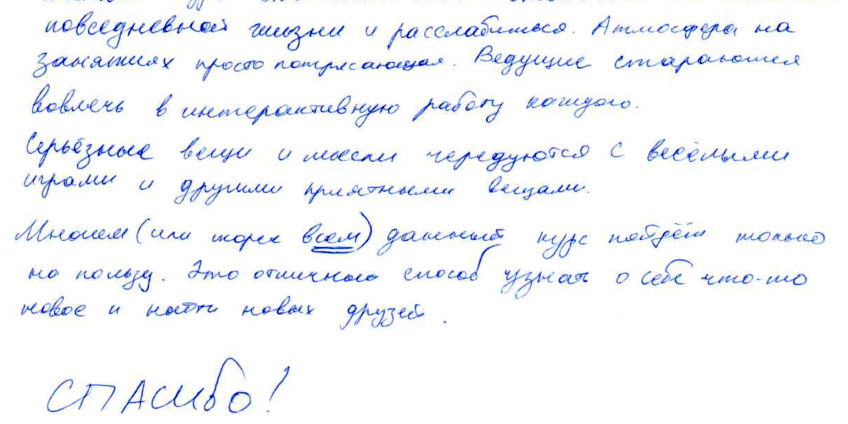 повседневной жизни и расслабиться. Атмосфера на
занятиях просто потрясающая. Ведущие стараются
вовлечь в интерактивную работу каждого.
Серьёзные вещи и мысли чередуются с весёлыми
играми и другими приятными вещами.
Многим (или скорее всем) данный курс пойдёт только
на пользу. Это отличный способ узнать о себе что-то
новое и найти новых друзей.
СПАСИБО!